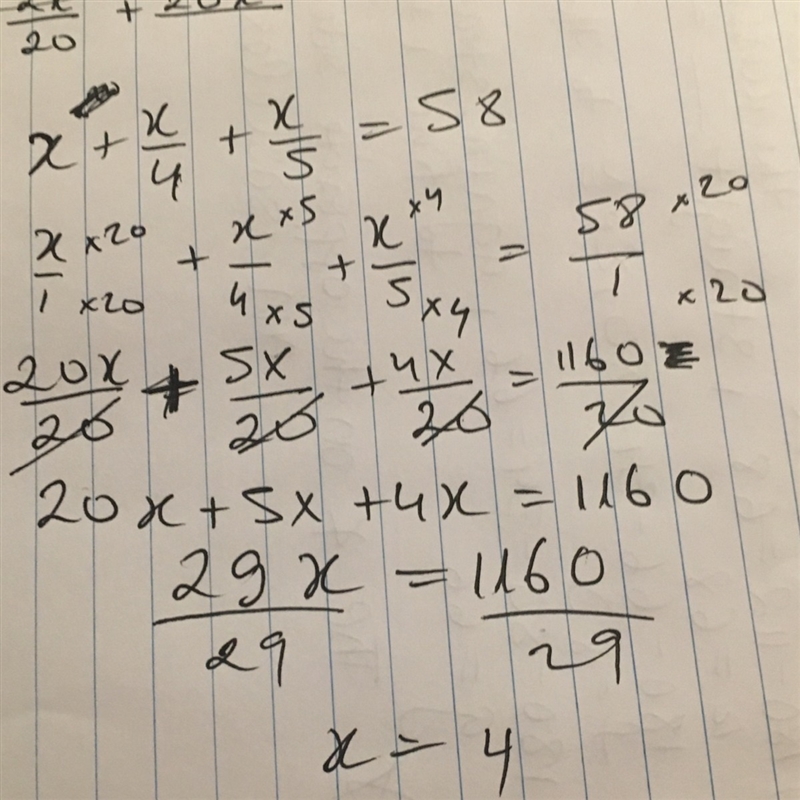 /20 +
x + x/4 + x/5 = 58
x/1 ×20/×20 + x/4 ×5/×5 + x/5 ×4/×4 = 58/1 ×20/×20
20x/20 + 5x/20 + 4x/20 = 1160/20
20x + 5x + 4x = 1160
29x/29 = 1160/29
x = 4